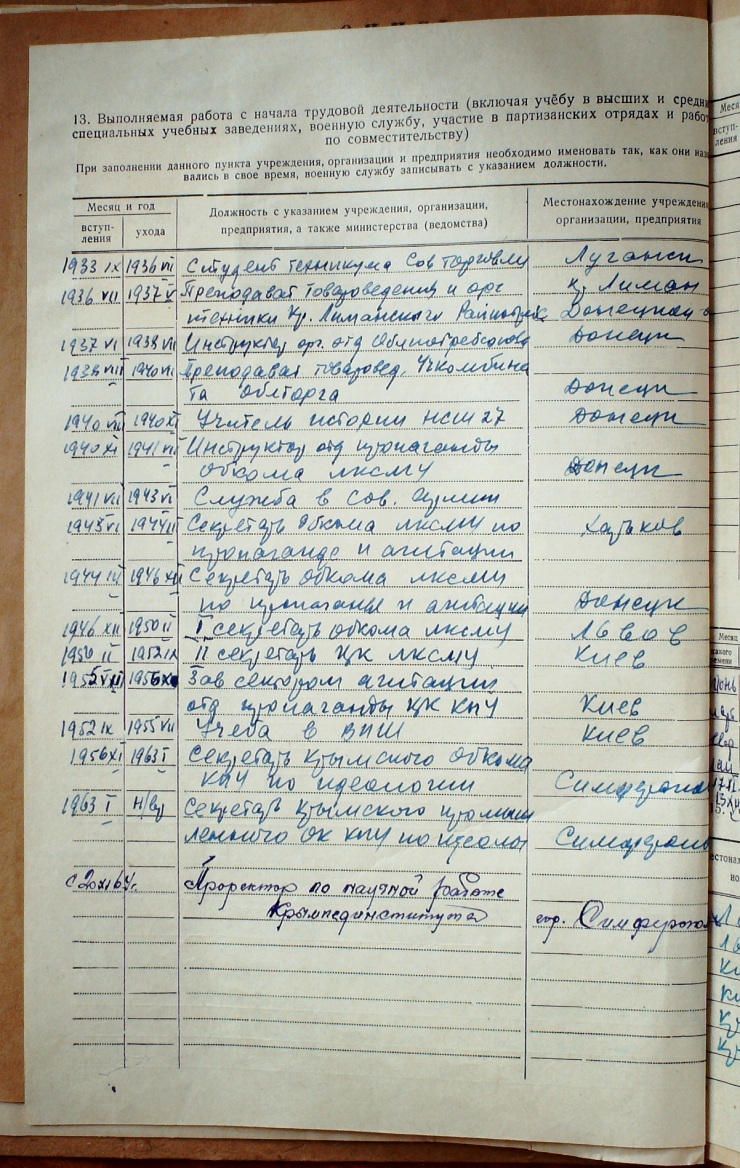 13. Выполняемая работа с начала трудовой деятельности (включая учёбу в высших и средни
специальных учебных заведениях, военную службу, участие в партизанских отрядах и работ
по совместительству)
При заполнении данного пункта учреждения, организации и предприятия необходимо именовать так, как они назы
вались в свое время, военную службу записывать с указанием должности.
Месяц и год
вступ-
ления
ухода
Должность с указанием учреждения, организации,
предприятия, а также министерства (ведомства)
Местонахождение учреждения
организации, предприятия
1933 IX 1936 VII Студент техникума Сов торговли Луганск
1936 VII 1937 V Преподават товароведения и орг Кр. Лиман
техники Кр. Лиманского Донецкой о
1937 VI 1938 VII Инструктор орг. отд Облпотребсоюза Донецк
1938 VII 1940 VII Преподават товаровед. Учкомбина
та Облторга Донецк
1940 VII 1940 XI Учитель истории НСШ 27 Донецк
1940 XI 1941 VII Инструктор отд пропаганды
обкома ЛКСМУ Донецк
1941 VII 1943 VI Служба в Сов. Армии
1943 VI 1944 III Секретарь Обкома ЛКСМУ по Харьков
пропаганде и агитации
1944 III 1946 XII Секретарь обкома ЛКСМУ
по пропаганде и агитации Донецк
1946 XII 1950 II I секретарь обкома ЛКСМУ Львов
1950 II 1952 IX II секретарь ЦК ЛКСМУ Киев
1955 VIII 1956 XI Зав сектором агитации
отд пропаганды ЦК КПУ Киев
1952 IX 1955 VII Учеба в ВПШ Киев
1956 XI 1963 I Секретарь Крымского обкома
КПУ по идеологии Симферополь
1963 I н/вр Секретарь Крымского промыш
ленного ОК КПУ по идеолог Симферополь
с 20 XI 64 г. Проректор по научной работе
Крымпединститута гор. Симферополь